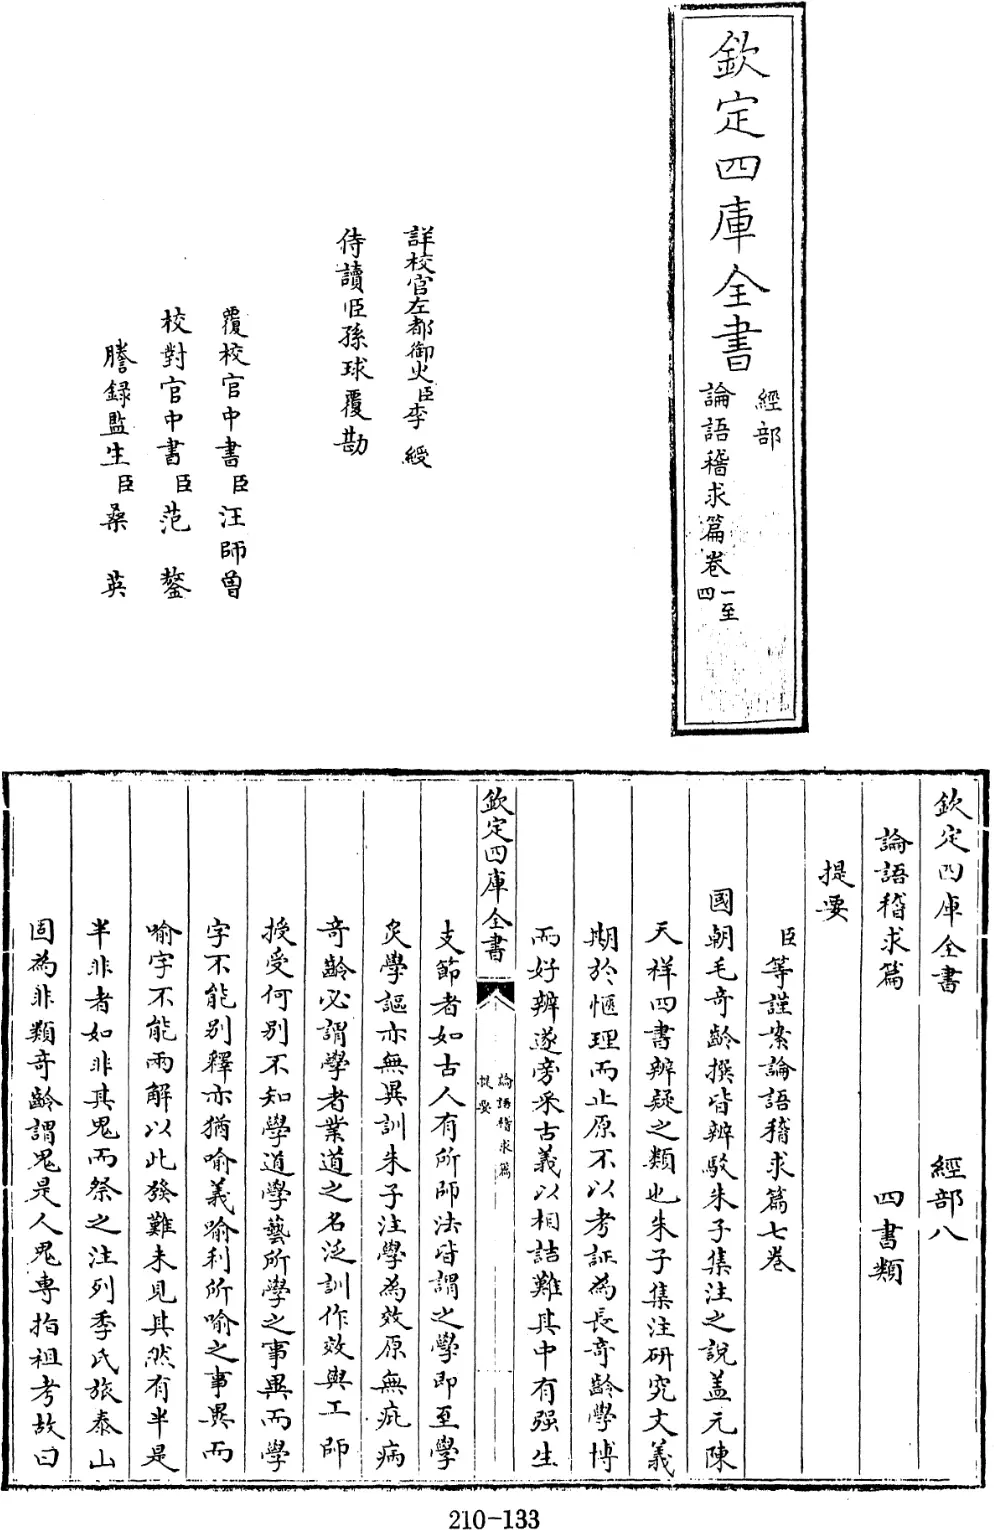 欽定四庫全書
經部
論語稽求篇卷一至四
詳校官左都御史臣李綬
侍讀臣孫球覆勘
覆校官中書臣汪師曾
校對官中書臣范鏊
謄錄監生臣桑英
欽定四庫全書 經部八
論語稽求篇 四書類
提要
臣等謹案論語稽求篇七卷
國朝毛奇齡撰皆辨駁朱子集注之說蓋元陳
天祥四書辨疑之類也朱子集注研究文義
期於愜理而止原不以考証為長奇齡學博
而好辨遂旁采古義以相詰難其中有强生
欽定四庫全書
論語稽求篇
提要
支節者如古人有所師法皆謂之學即至學
炙學謳亦無異訓朱子注學為效原無疵病
奇齡必謂學者業道之名泛訓作效與工師
授受何别不知學道學藝所學之事異而學
字不能别釋亦猶喻義喻利所喻之事異而
喻字不能兩解以此發難未見其然有半是
半非者如非其鬼而祭之注列季氏旅泰山
固為非類奇齡謂鬼是人鬼專指祖考故曰
210-133